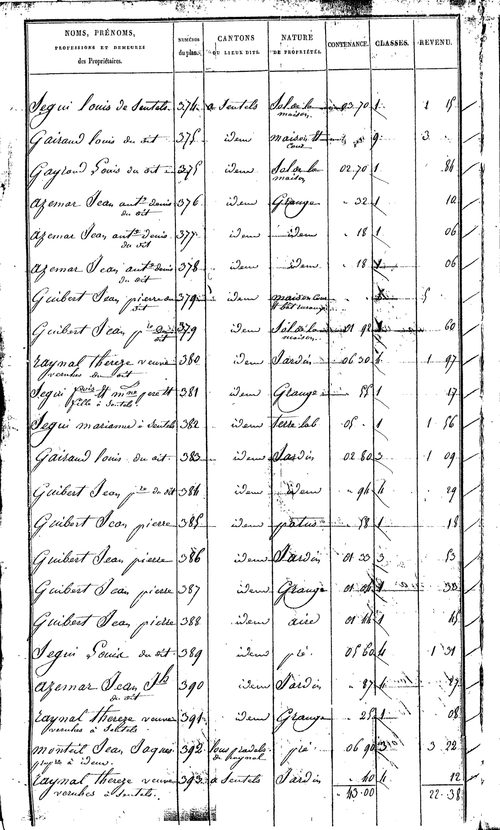 NOMS, PRÉNOMS, PROFESSIONS ET DEMEURES des Propriétaires. NUMÉROS du plan. CANTONS OU LIEUX DITS. NATURE DE PROPRIÉTÉS. CONTENANCE. CLASSES. REVENU.
Segui Louis de Sentels. 374 a Sentels Sol de la maison 03.70 1 1 15
Gairaud Louis du dit 375 idem maison et cour 9 3
Gayraud Louis du dit 375 idem Sol de la maison 02.70 1 84
Azemar Jean ante denis du dit 376 idem Grange 32 1 10
Azemar Jean ante denis du dit 377 idem idem 18 1 06
Azemar Jean ante denis du dit 378 idem idem 18 06
Guibert Jean pierre du dit 379 idem maison cour 5
Guibert Jean pre du dit 379 idem Sol de la maison 01 92 60
Raynal thereze veuve vernhes du dit 380 idem Jardin 06 30 1 97
Segui pere et fille a Sentels 381 idem Grange 55 1 17
Segui marianne a Sentels 382 idem terre lab 05 1 1 56
Gairaud Louis du dit 383 idem Jardin 02 80 3 1 09
Guibert Jean pre du dit 384 idem idem 94 4 29
Guibert Jean pierre 385 idem patus 58 1 18
Guibert Jean pierre 386 idem Jardin 01 33 3 53
Guibert Jean pierre 387 idem Grange 01 04 1 33
Guibert Jean pierre 388 idem aire 01 44 1 45
Segui Louis du dit 389 idem pré 05 60 4 1 31
Azemar Jean Jh du dit 390 idem Jardin 87 4 27
Raynal thereze veuve vernhes a Sentels 391 idem Grange 25 1 08
monteil Jean Jaques a idem 392 Sous pradals de raynal pré 06 90 3 3 22
Raynal thereze veuve vernhes a Sentels. 393 a Sentels Jardin 40 4 12
43.00 22.38